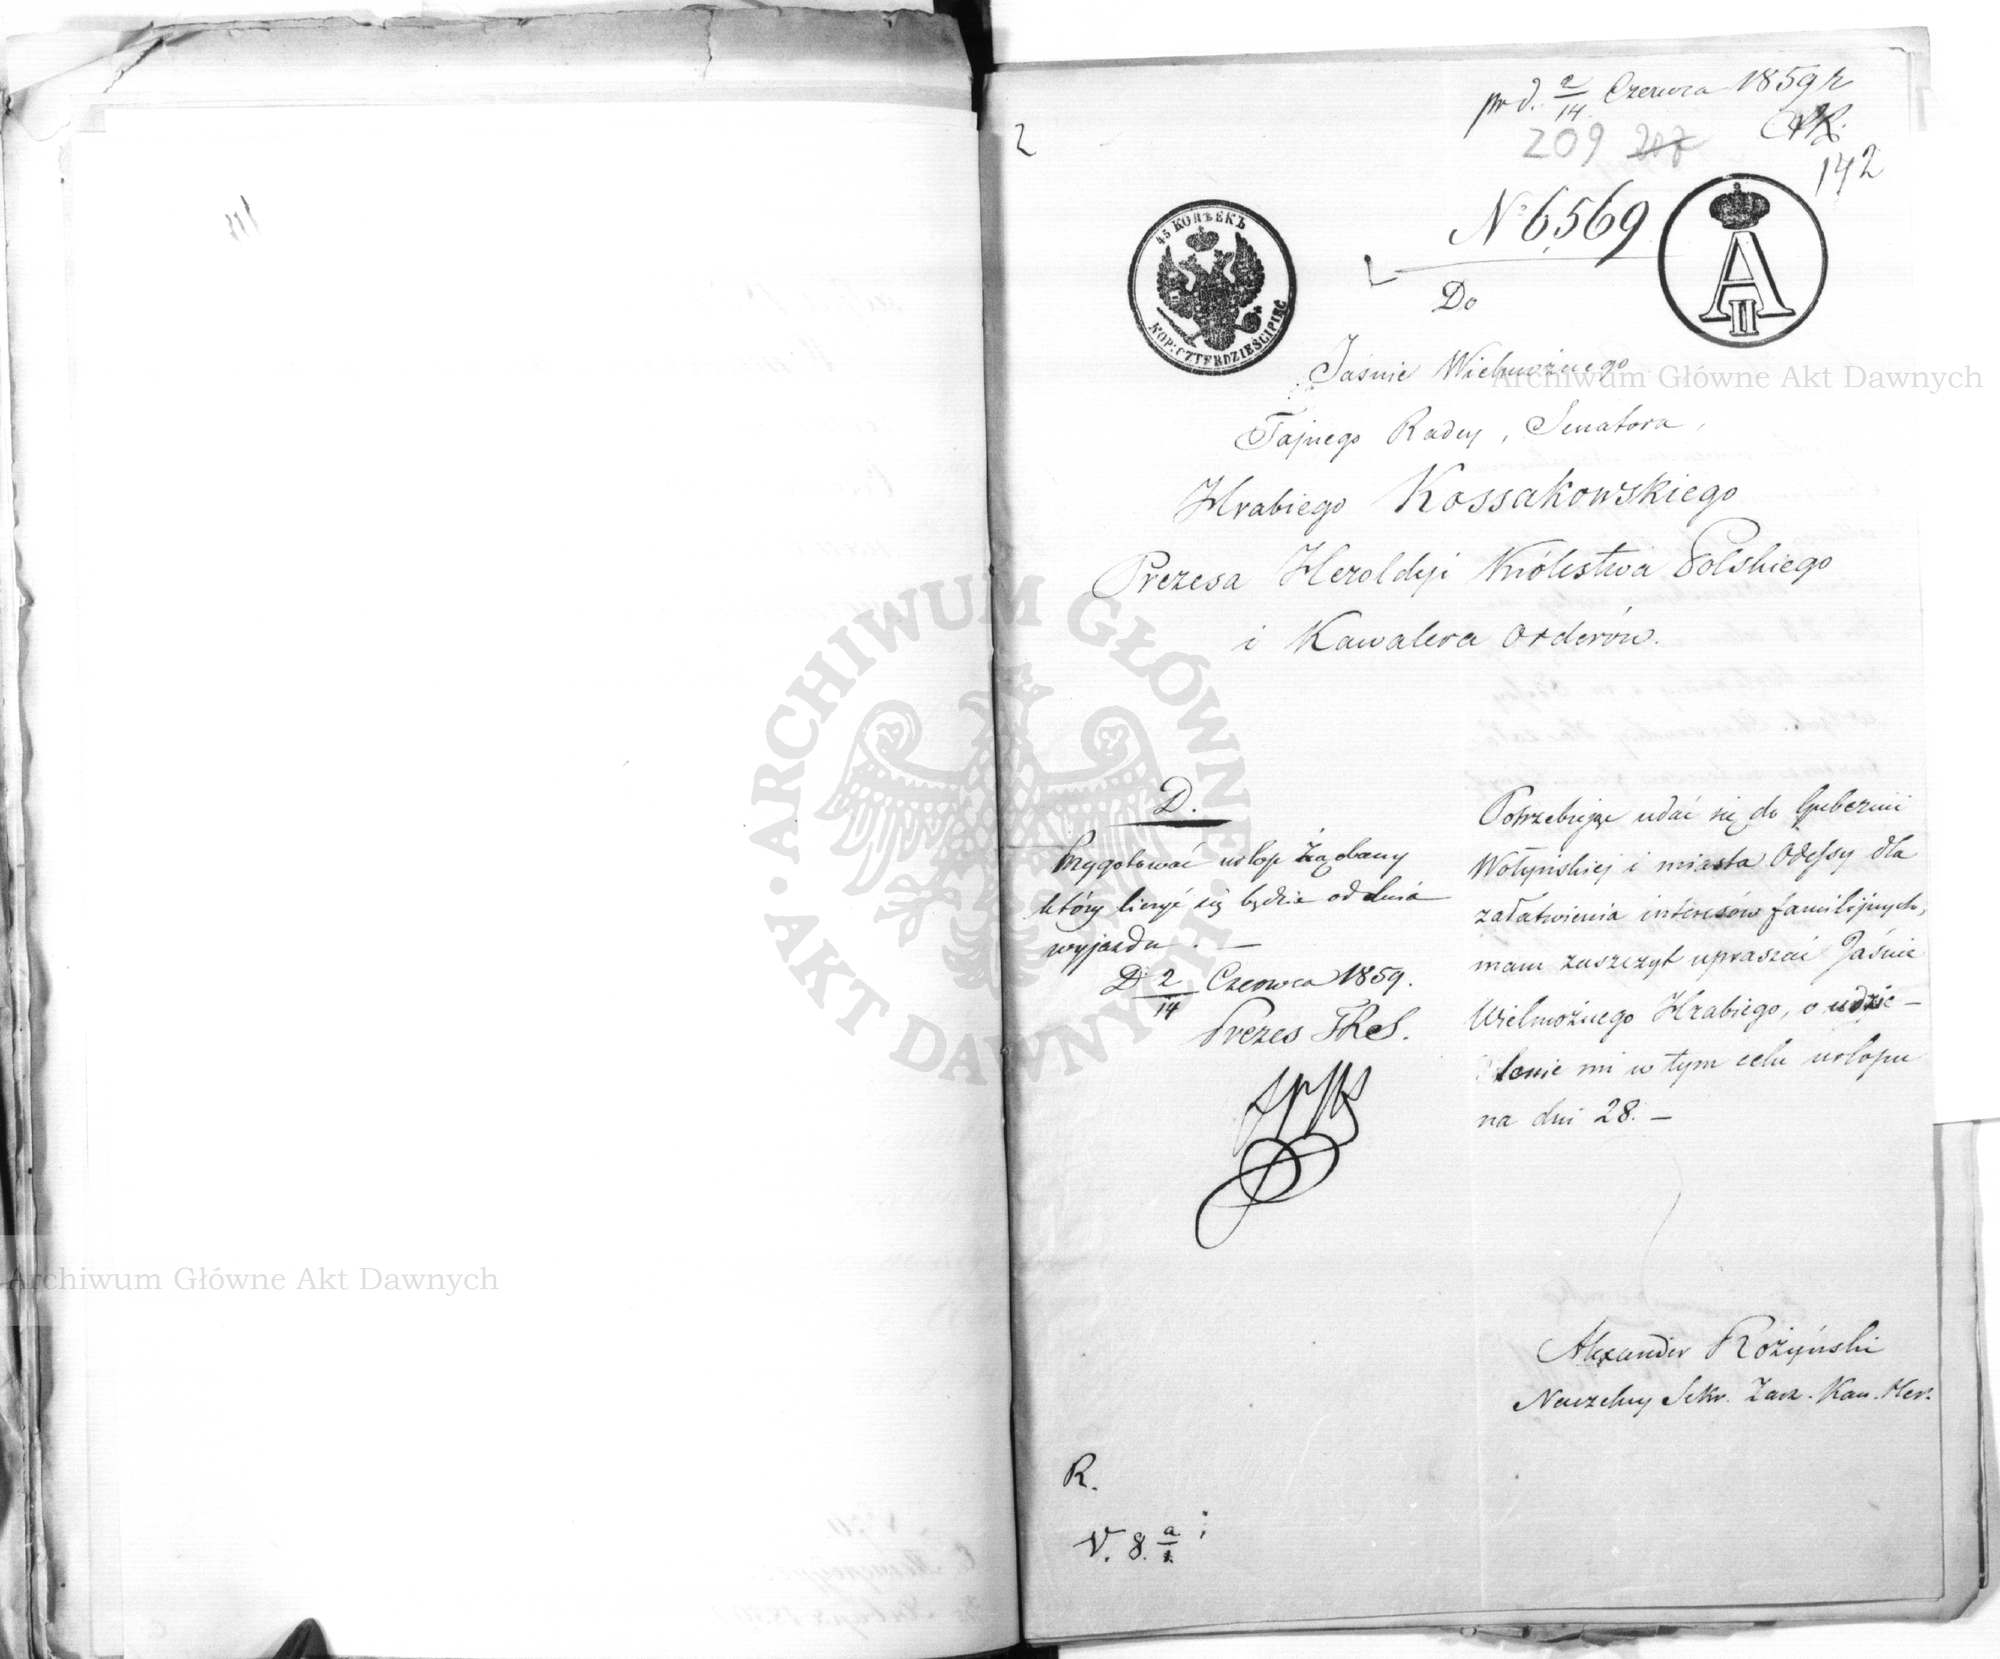 pr d. 2/14 Czerwca 1859 r
209 207
142
2
№ 6569
45 КОПѢЕКЪ
KOP: CZTERDZIEŚCI PIĘĆ
A II
Do
Jaśnie Wielmożnego
Tajnego Radcy, Senatora,
Hrabiego Kossakowskiego
Prezesa Heroldyi Królestwa Polskiego
i Kawalera Orderów.
D.
Przygotować urlop żądany
który liczyć się będzie od dnia
wyjazdu. —
D. 2/14 Czerwca 1859.
Prezes T.R.S.
Potrzebując udać się do Gubernii
Wołyńskiej i miasta Odessy dla
załatwienia interesów familijnych,
mam zaszczyt upraszać Jaśnie
Wielmożnego Hrabiego, o udzie-
lenie mi w tym celu urlopu
na dni 28. —
Alexander Różyński
Naczelny Sekr. Zarz. Kan. Her.
R.
V. 8. a/1
Archiwum Główne Akt Dawnych
ARCHIWUM GŁÓWNE AKT DAWNYCH
Archiwum Główne Akt Dawnych